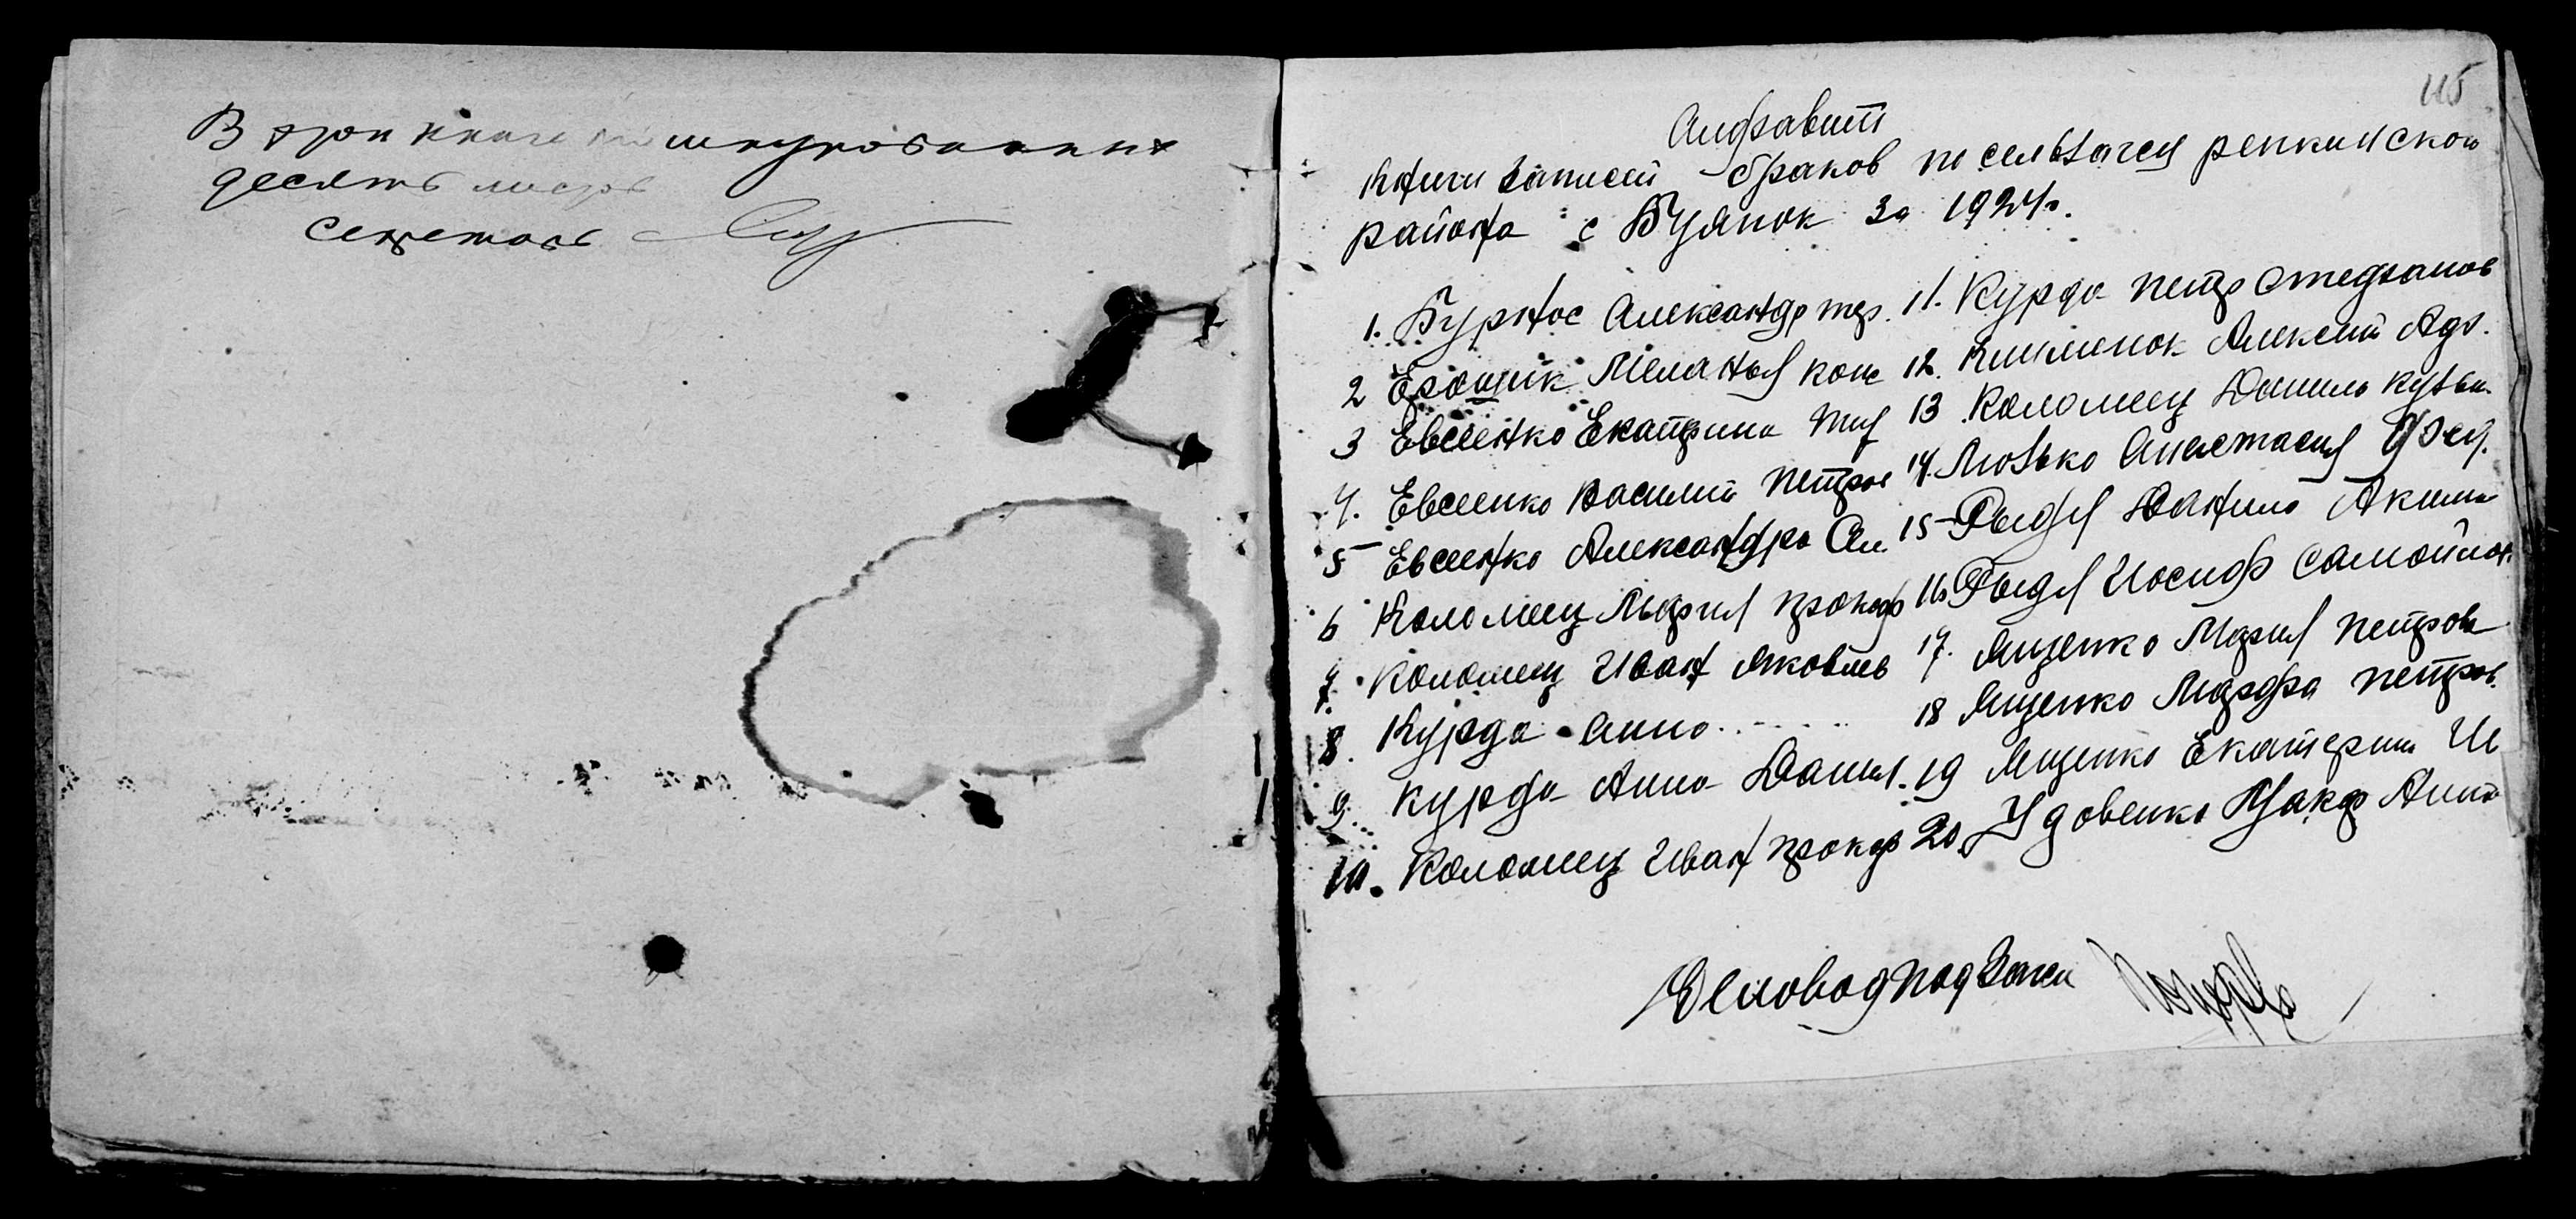 В этой книге прошнурованных
десять листов
Секретарь
115
Алфавит
Книги записей браков по сельзагсу репкинского
района с Буянок за 1924 г.
1. Бурнос Александр
2 Ерощик Меланья
3 Евсеенко Екатрина
4. Евсеенко Василий петров
5 Евсеенко Александра Ал.
6 Коломиец Мария прокоф
7. Коломиец Иван Яковлев
8. Курда Анна
9. Курда Анна Данил.
10. Коломиец Иван прокоф
11. Курда петр Стефанов
12. Клименок Алексей
13 Коломиец Данило Кузьм.
14. Мозько Анастасия
15 Рыдя Данило Аким
16 Рыдя Иосиф Самойлов.
17. Ященко Мария петров
18 Ященко Марфа петров.
19 Ященко Екатерин Ив
20 Удовенко
Деловод подзагса